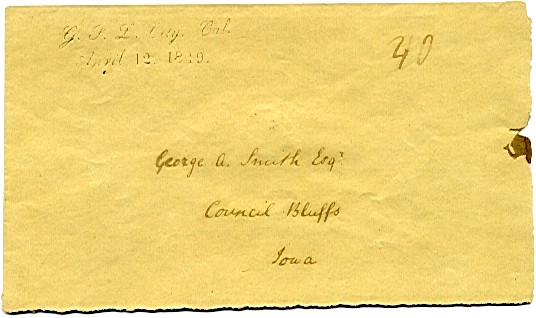 G. S. L. City. Cal.
April 12. 1849.
40
George A. Smith Esqr
Council Bluffs
Iowa